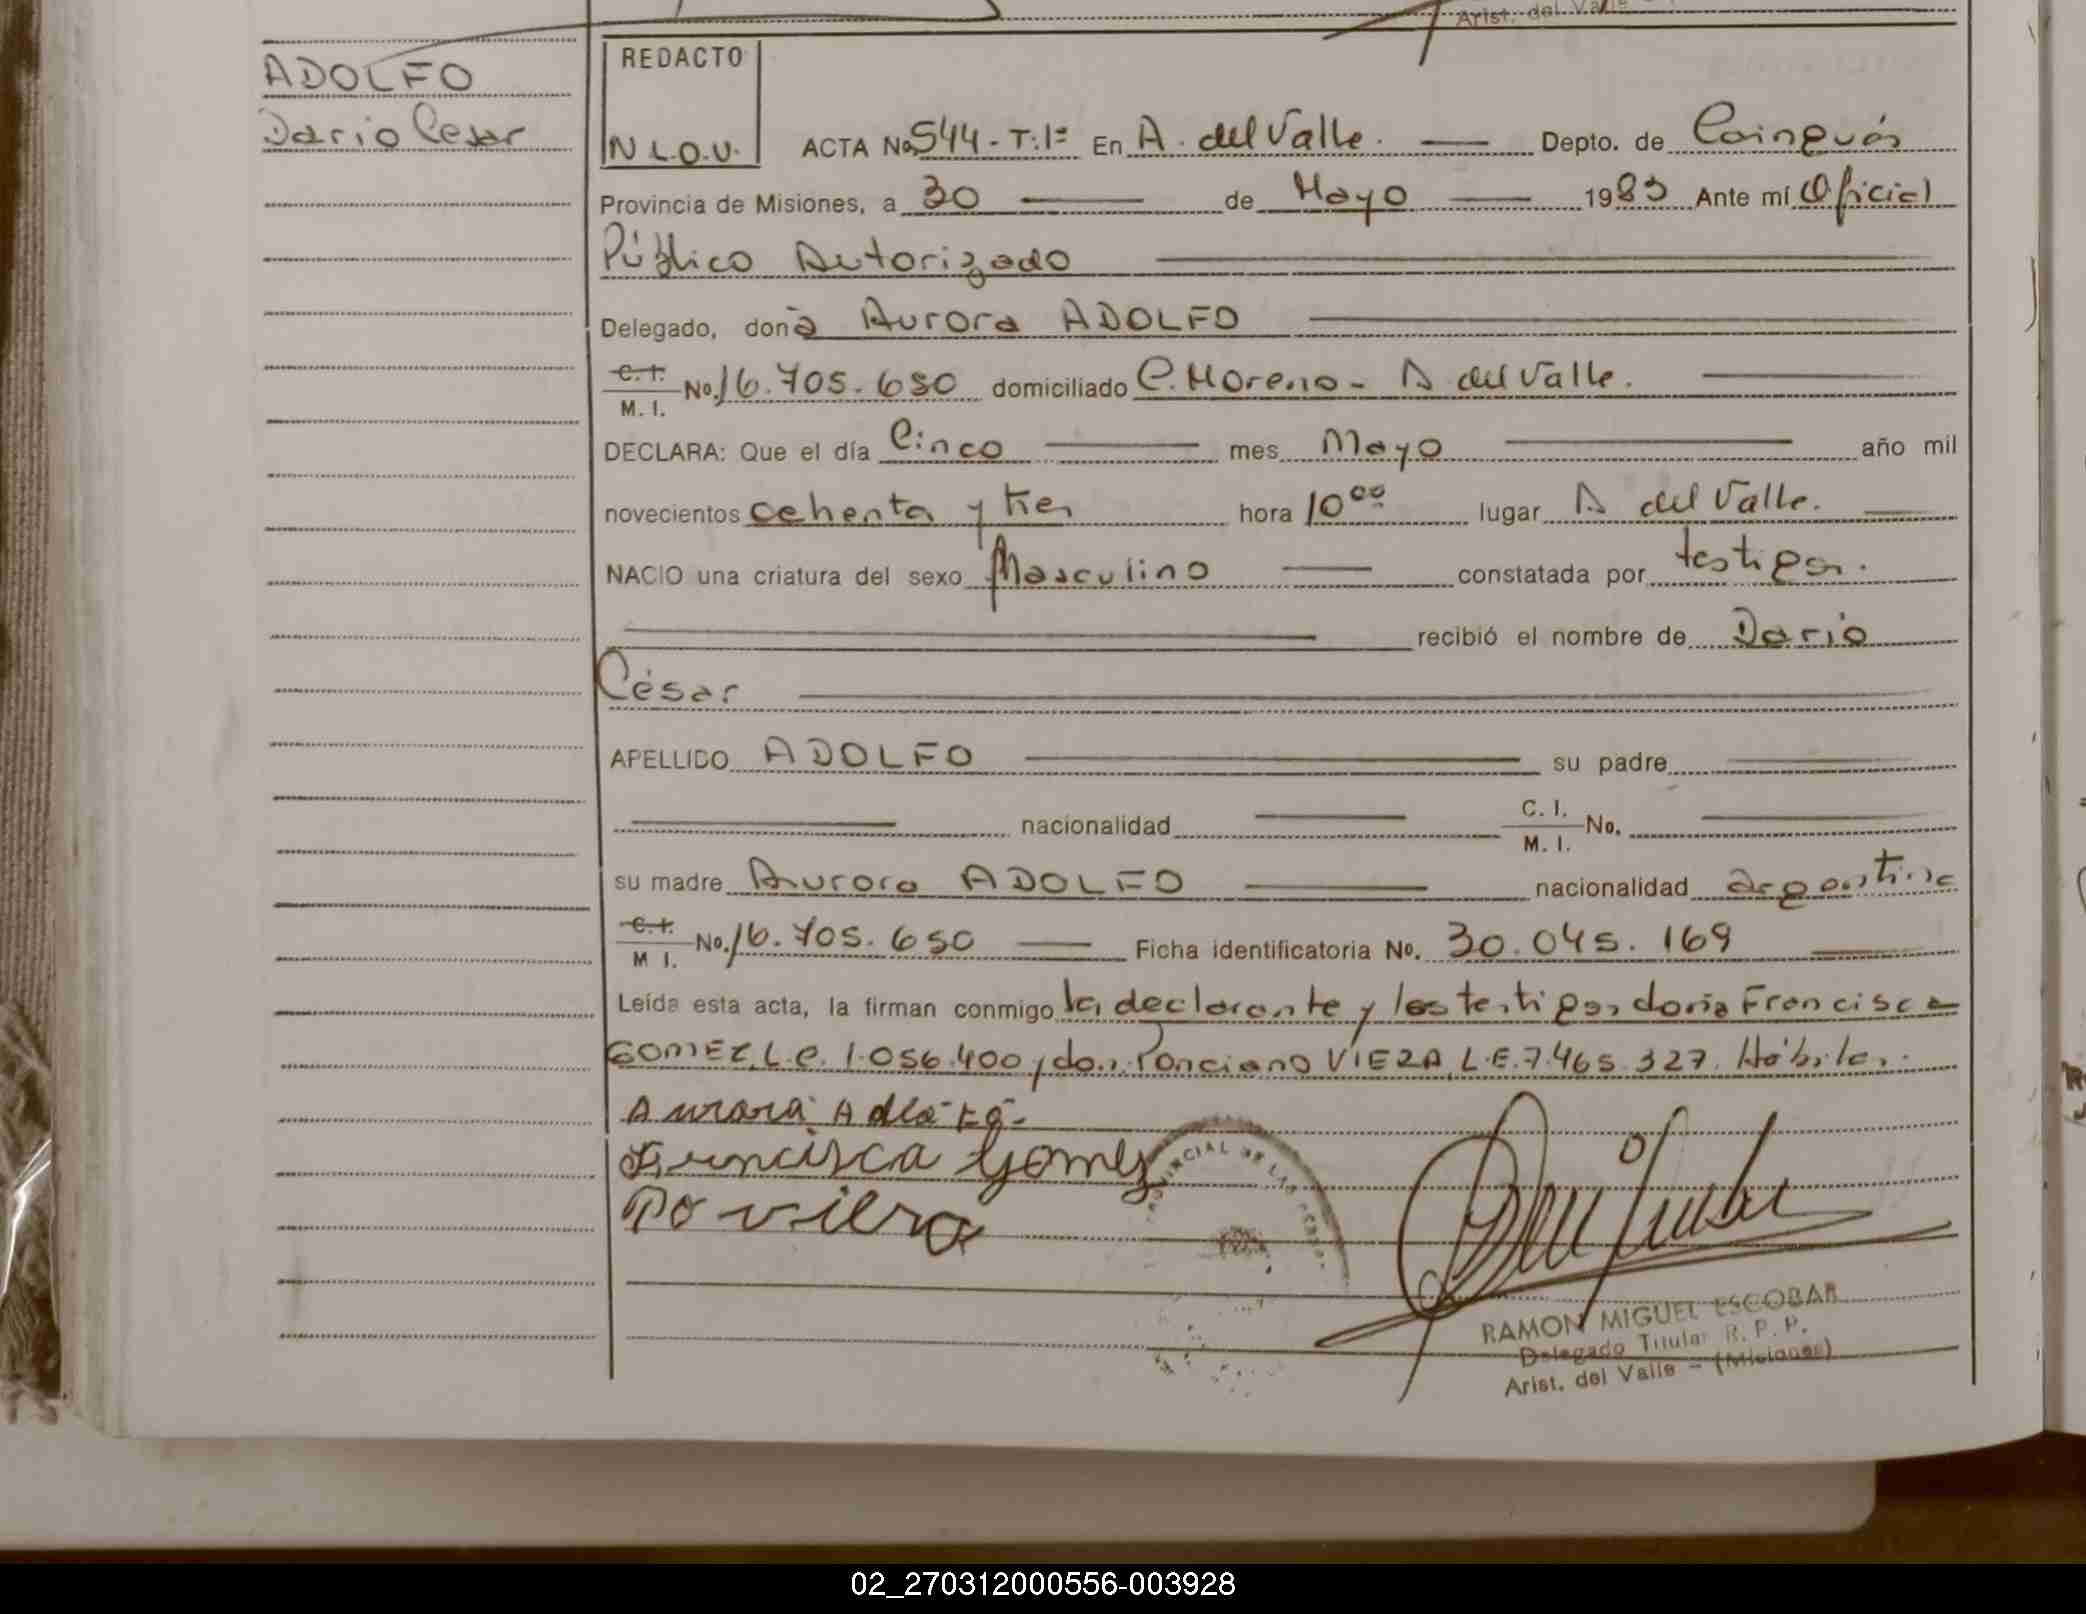 Arist. del Valle
ADOLFO
Dario Cesar
REDACTO
N L.O.V.
ACTA No. 544 - T: 1º En A. del Valle. Depto. de Cainguás
Provincia de Misiones, a 30 de Mayo 1983 Ante mí Oficial
Público Autorizado
Delegado, doña Aurora ADOLFO
C. I. M. I. No. 16.705.650 domiciliado C. Moreno - A del Valle.
DECLARA: Que el día Cinco mes Mayo año mil
novecientos ochenta y tres hora 10 00 lugar A del Valle.
NACIO una criatura del sexo Masculino constatada por testigos.
recibió el nombre de Dario
César
APELLIDO ADOLFO su padre
nacionalidad C. I. M. I. No.
su madre Aurora ADOLFO nacionalidad argentina
C. I. M I. No. 16.705.650 Ficha identificatoria No. 30.045.169
Leída esta acta, la firman conmigo la declarante y los testigos doña Francisca
GOMEZ L.C. 1.056.400 y don Ponciano VIERA L.E. 7.465.327. Hábiles.
Aurora
Francisca Gomez
Po viera
PROVINCIAL DE LAS PERSONAS
RAMON MIGUEL ESCOBAR
Delegado Titular R. P. P.
Arist. del Valle - (Misiones)
02_270312000556-003928